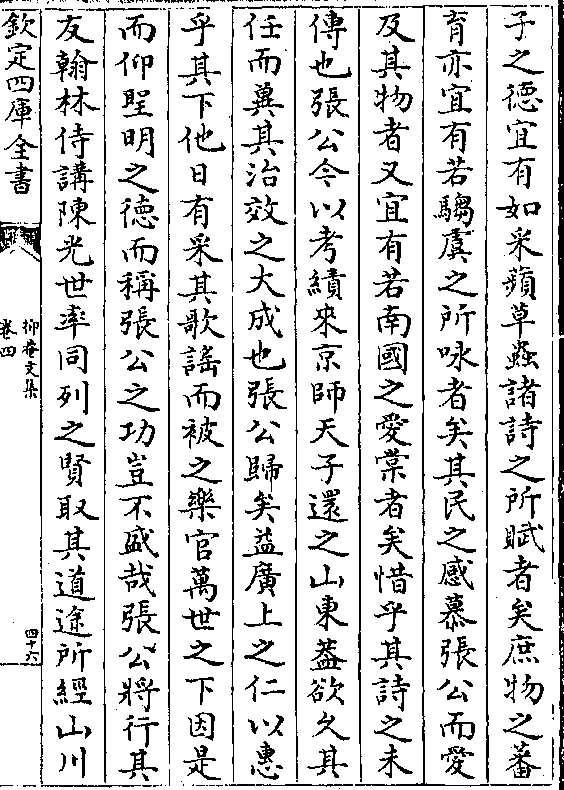 子之徳宜有如采蘋草蟲諸詩之所賦者矣庶物之蕃
育亦宜有若騶虞之所咏者矣其民之感慕張公而愛
及其物者又宜有若南國之愛棠者矣惜乎其詩之未
傳也張公今以考績來京師天子還之山東葢欲久其
任而兾其治效之大成也張公歸矣益廣上之仁以惠
乎其下他日有采其歌謡而被之樂官萬世之下因是
而仰聖明之德而稱張公之功豈不盛哉張公將行其
友翰林侍講陳光世率同列之賢取其道途所經山川
欽定四庫全書
抑菴文集
卷四
四十六